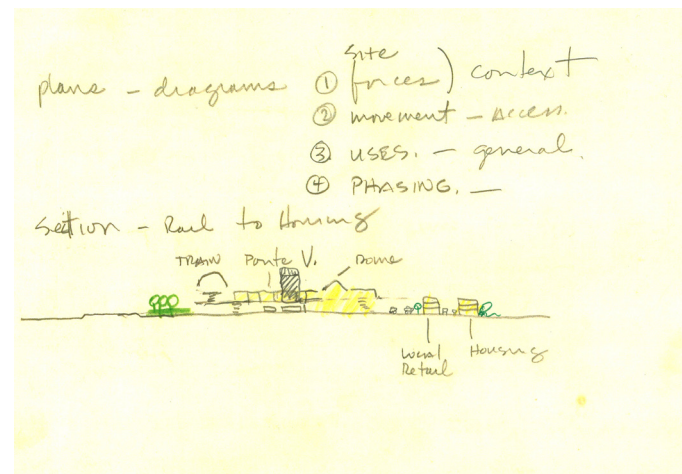 site
plans - diagrams ① forces) context
② movement - ACCESS.
③ USES. - general.
④ PHASING. —
Section - Rail to Housing
TRAIN Ponte V. Dome
Local Housing
Retail